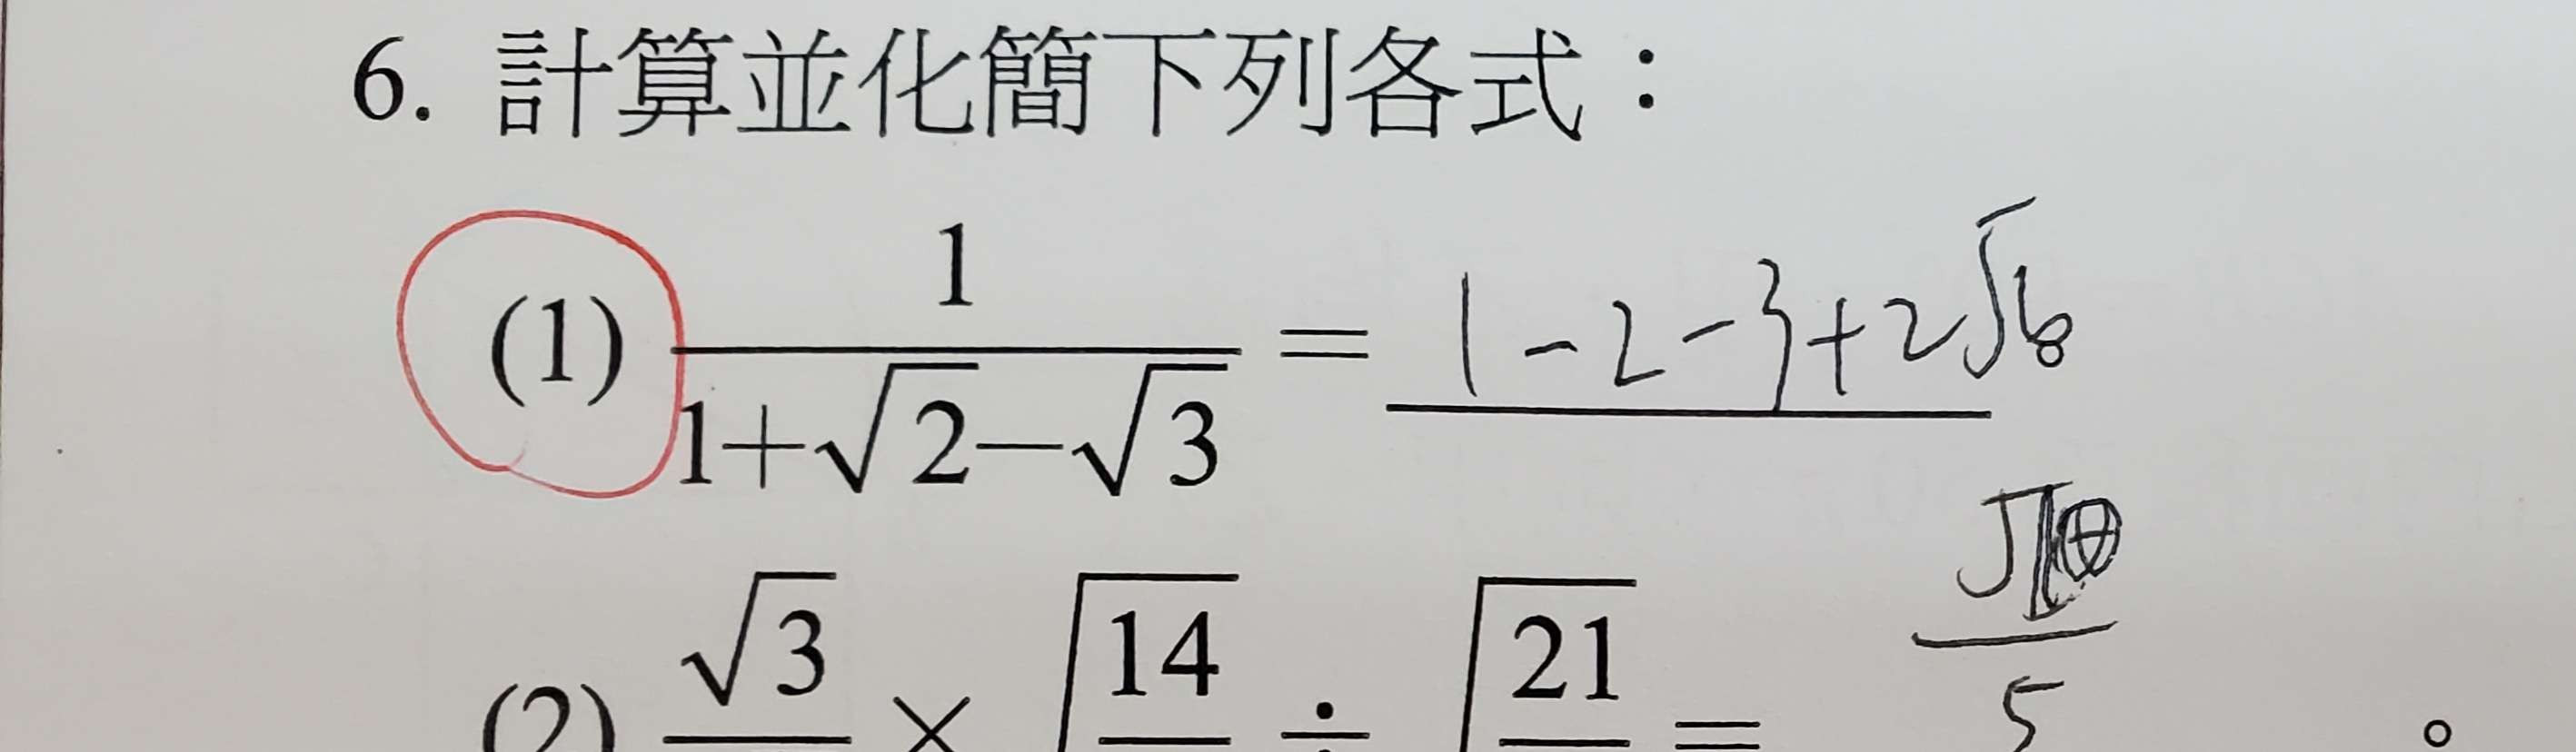 6. 計算並化簡下列各式：
(1) 1/(1+√2−√3) = 1-2-3+2√6
(2) √3 × √14 ÷ √21 = √10/5 。